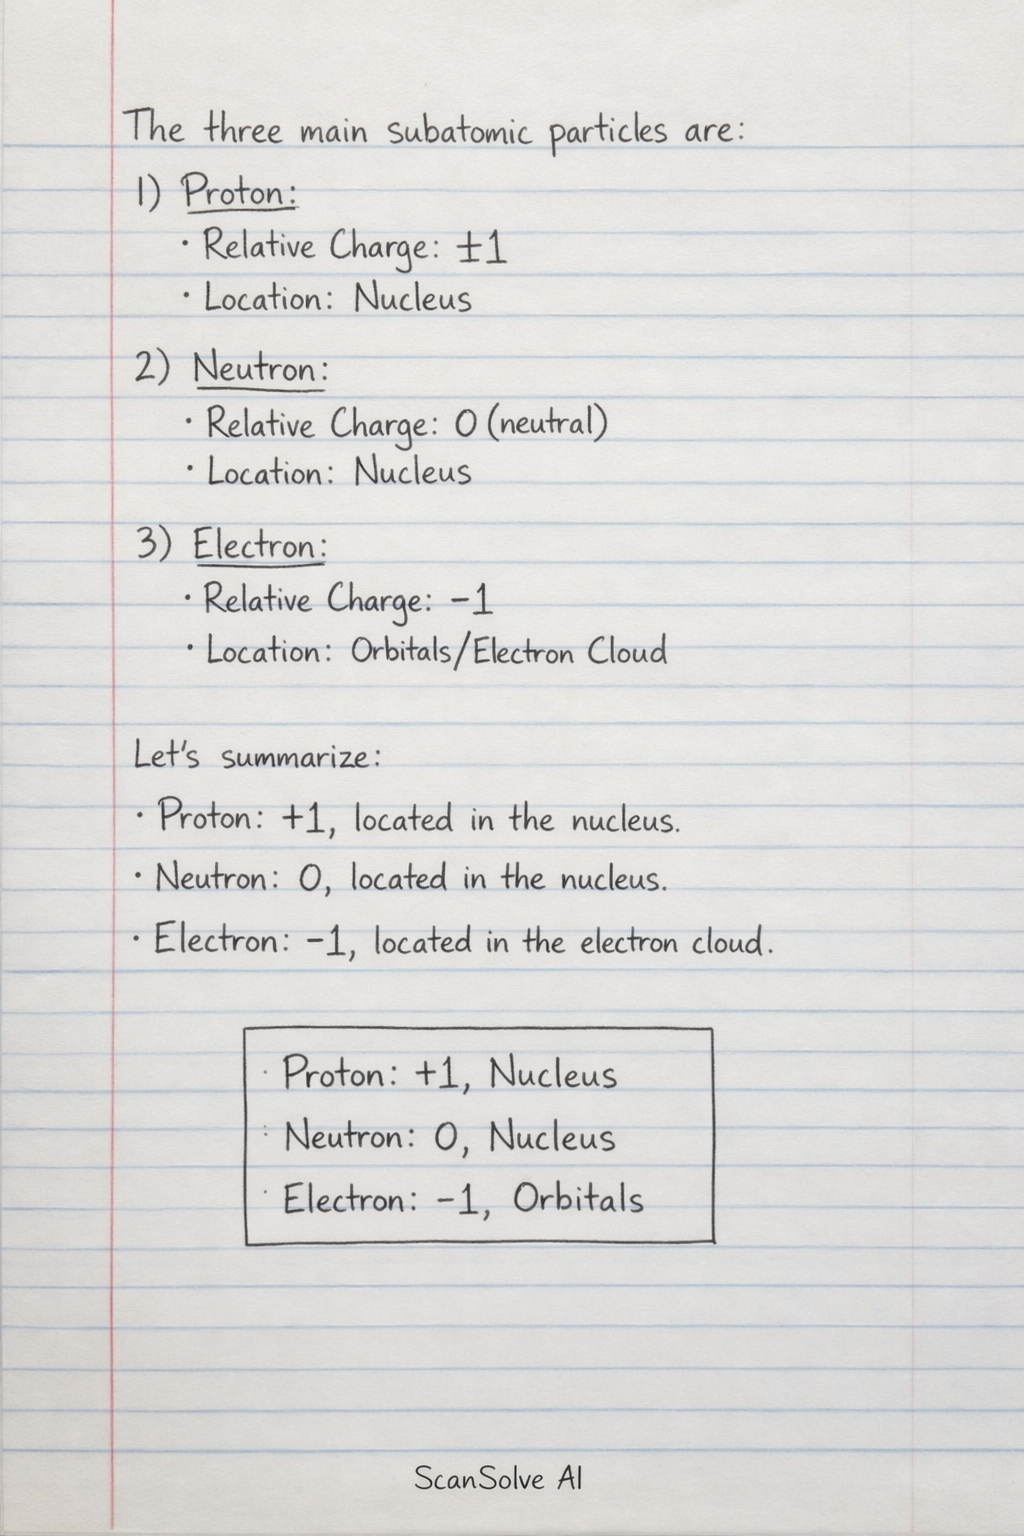 The three main subatomic particles are:
1) Proton:
· Relative Charge: ±1
· Location: Nucleus
2) Neutron:
· Relative Charge: 0 (neutral)
· Location: Nucleus
3) Electron:
· Relative Charge: -1
· Location: Orbitals/Electron Cloud
Let's summarize:
· Proton: +1, located in the nucleus.
· Neutron: 0, located in the nucleus.
· Electron: -1, located in the electron cloud.
· Proton: +1, Nucleus
: Neutron: 0, Nucleus
· Electron: -1, Orbitals
ScanSolve AI